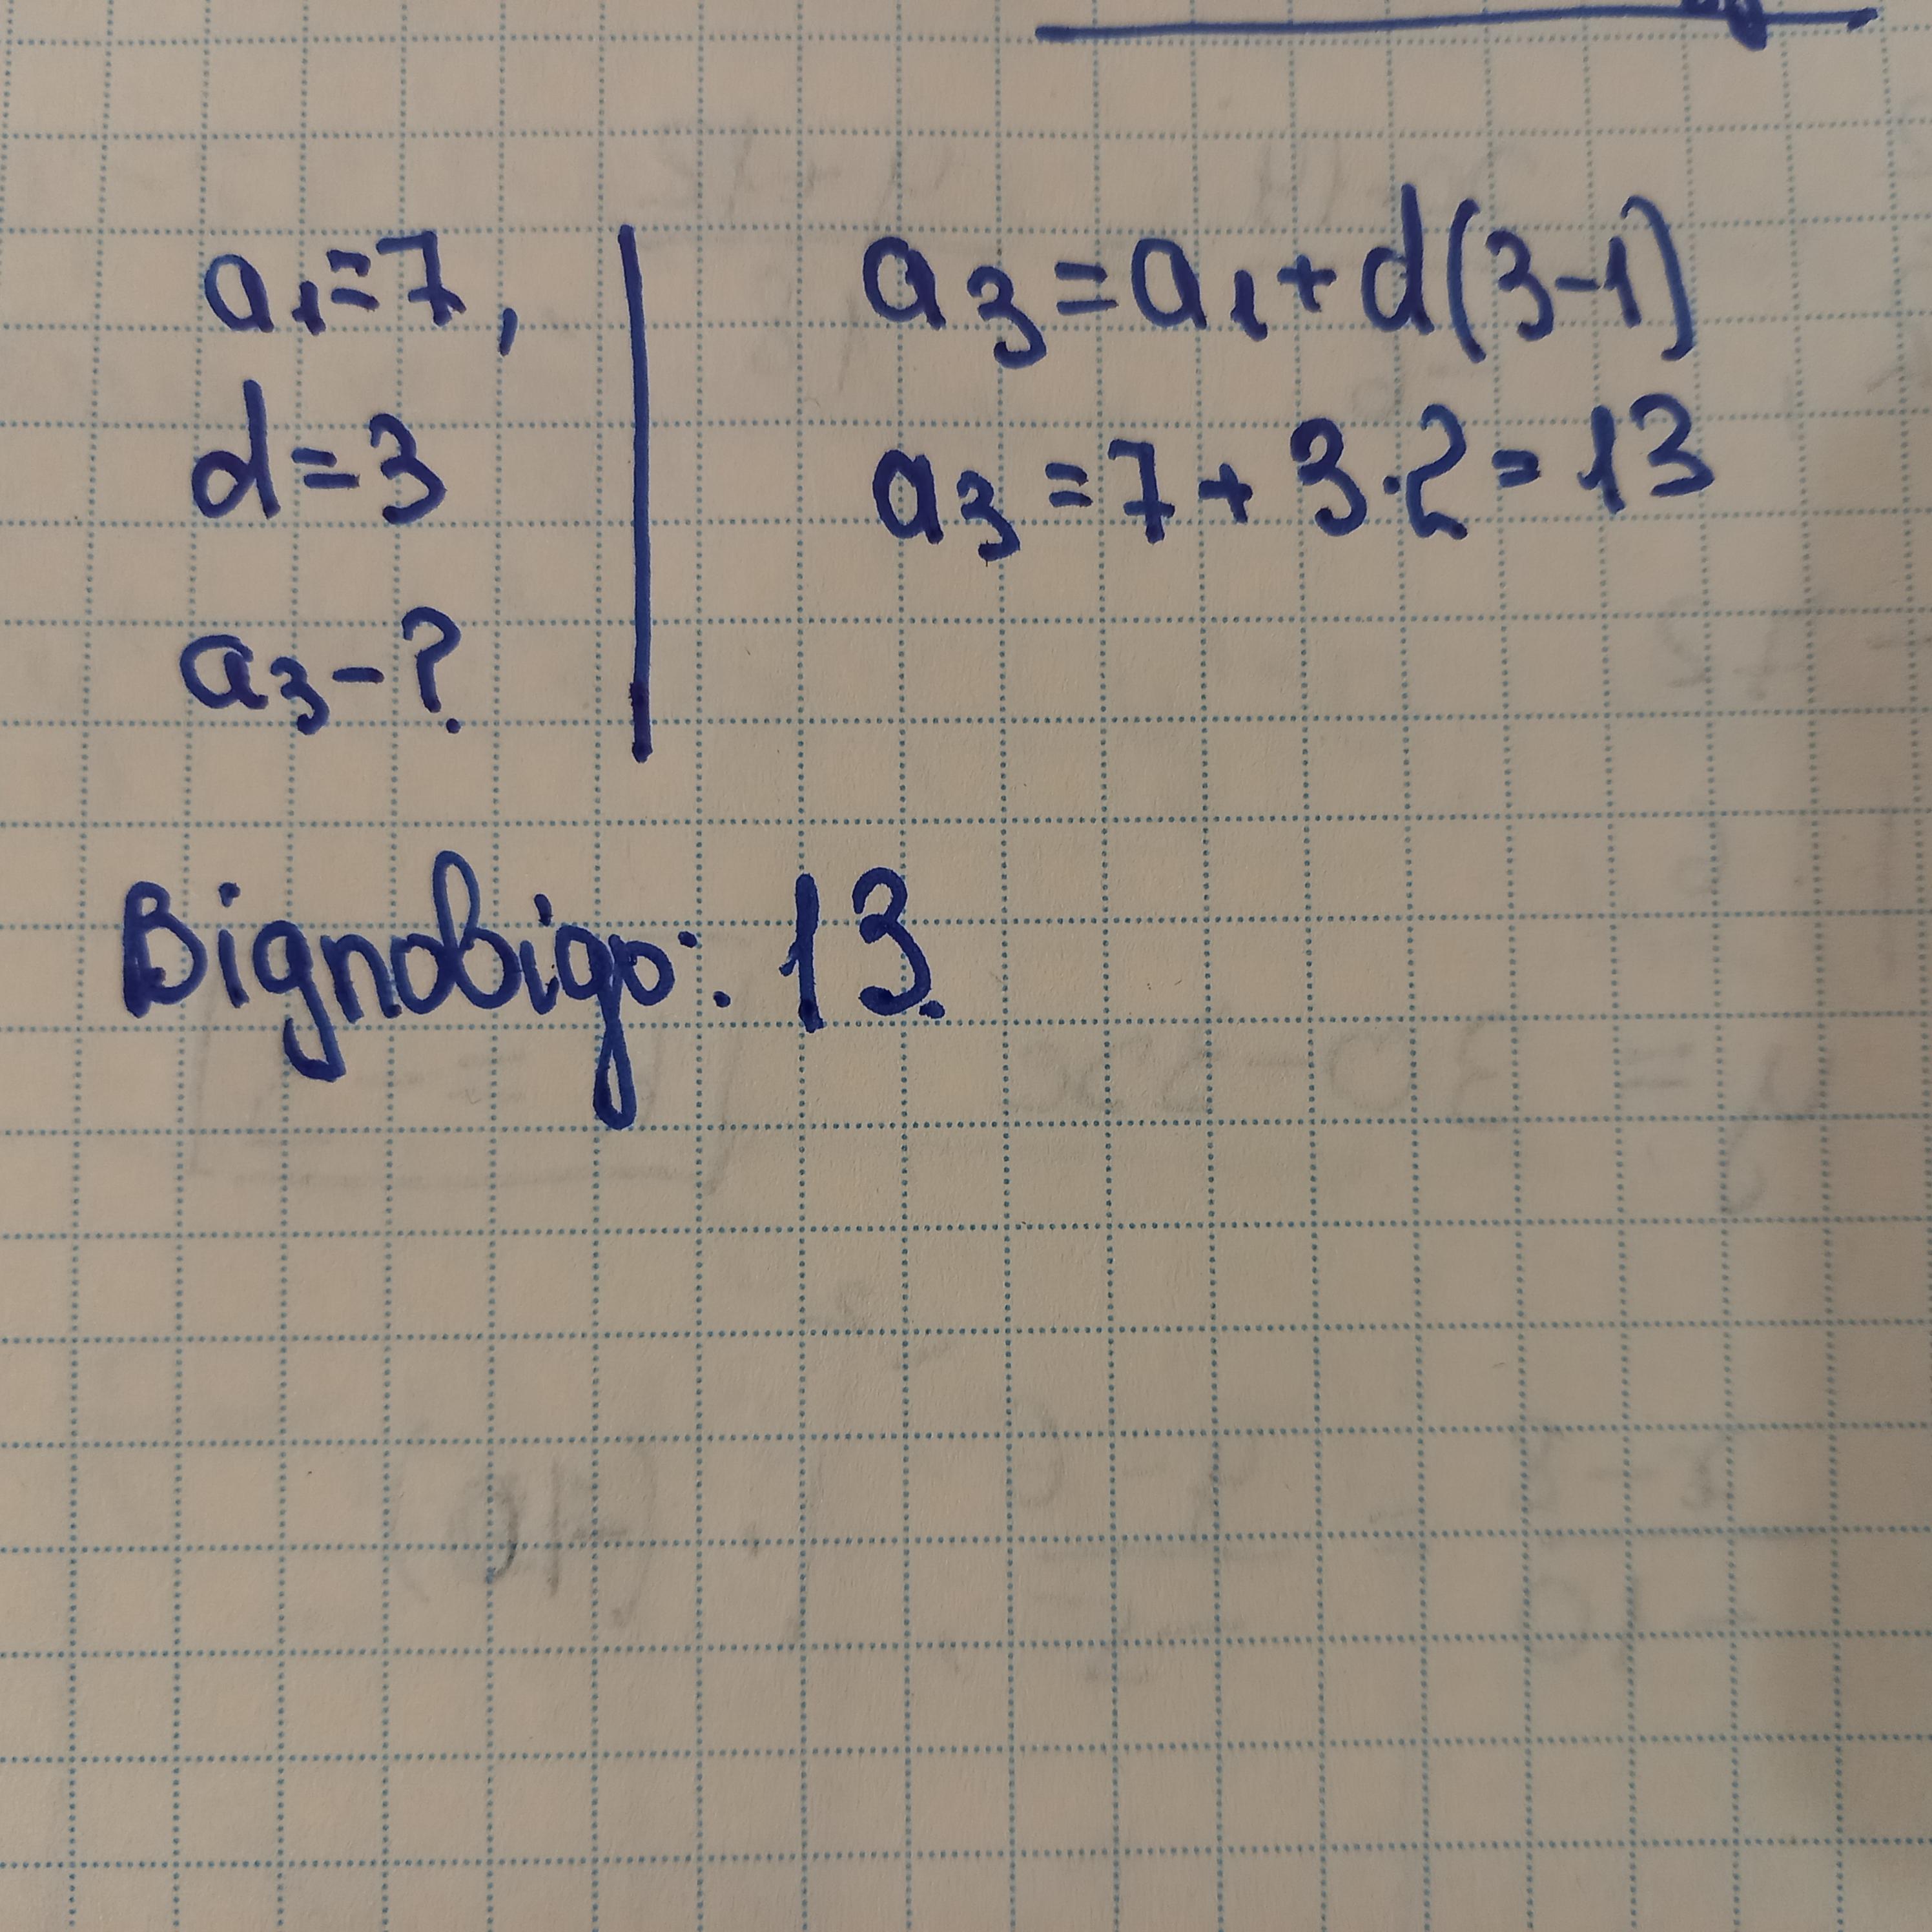 a₁=7,
d=3
a₃-?
a₃=a₁+d(3-1)
a₃=7+3·2=13
Відповідь: 13.